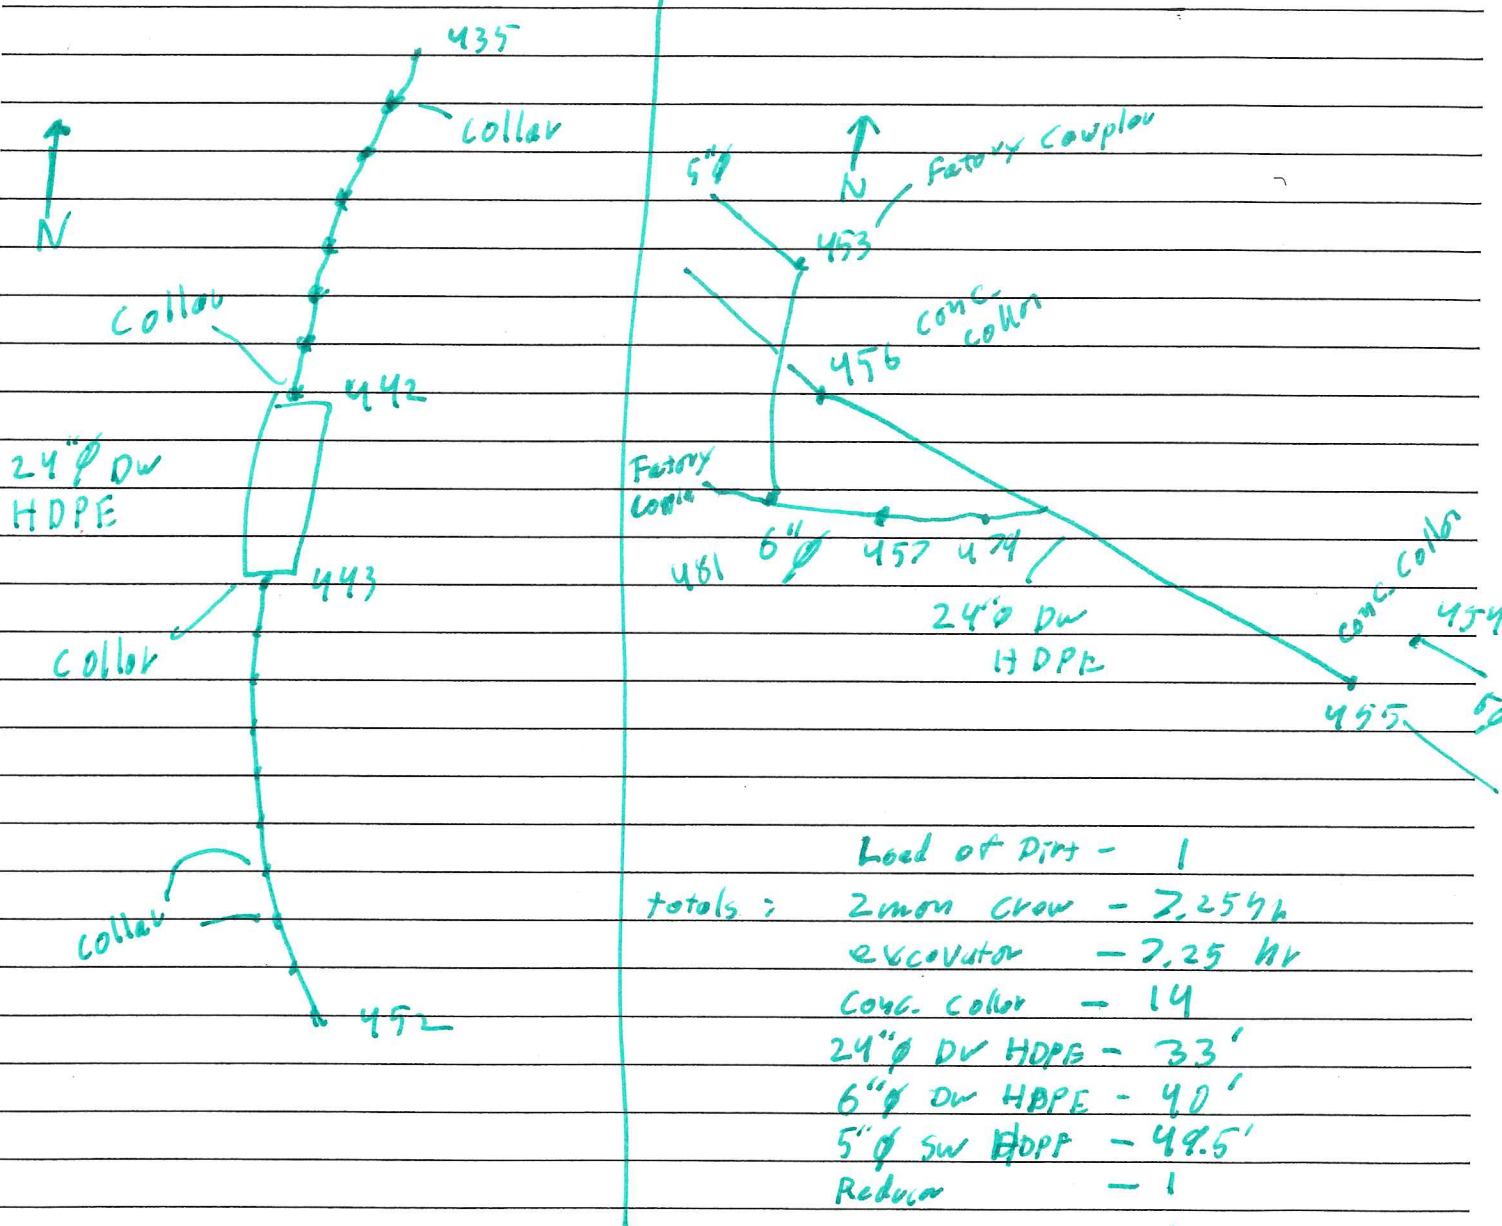 435
collar
N
Collar
442
24"ø DW
HDPE
443
collar
collar
452
5"ø
N
Fatory Coupler
453
conc.
collar
456
Fatory
6"ø
457
474
481
24"ø DW
HDPE
conc. collar
454
455
Load of Dirt - 1
totals: 2 man crew - 7.25 hr
excavator - 7.25 hr
Conc. Collar - 14
24"ø DW HDPE - 33'
6"ø DW HDPE - 40'
5"ø SW HDPE - 49.5'
Reducer - 1